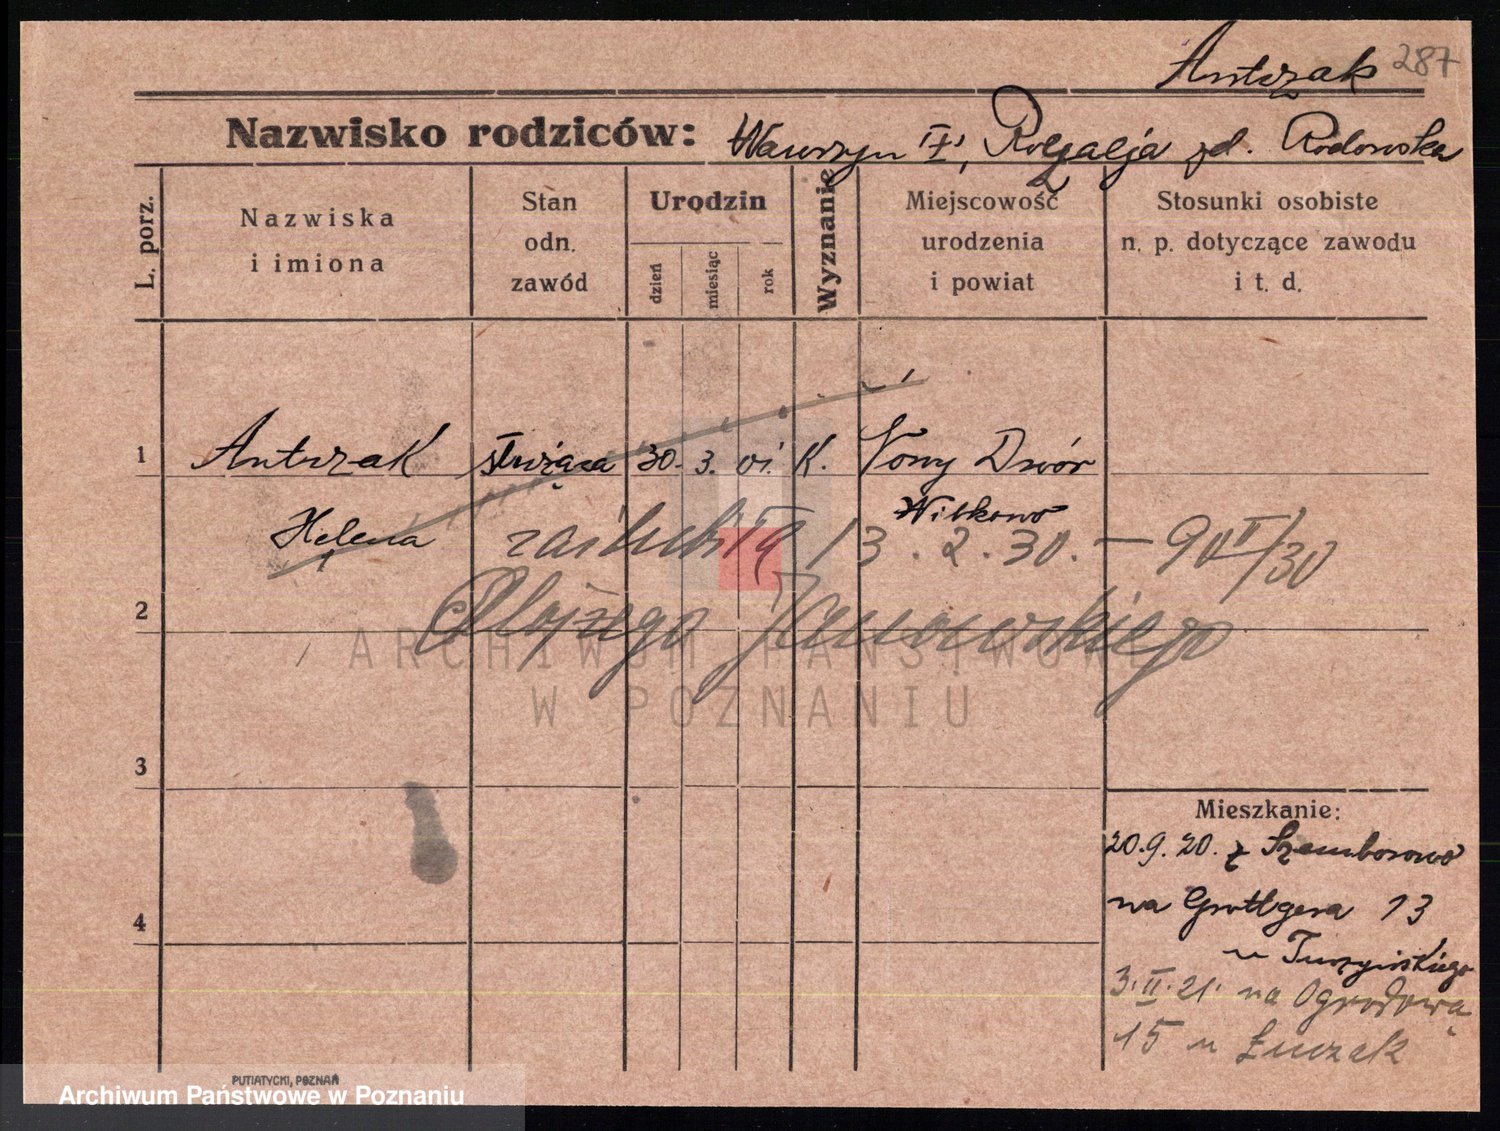 Antczak 287
Nazwisko rodziców: Wawrzyn
L. porz.
Nazwiska i imiona
Stan odn. zawód
Urodzin
dzień miesiąc rok
Wyznanie
Miejscowość urodzenia i powiat
Stosunki osobiste n. p. dotyczące zawodu i t. d.
1 Antczak służąca 30. 3. 01. K. Nowy Dwór
Helena Witkowo
zaślubiła 13.2.30. — 90 II/30
2 Alojzego Janowskiego
3
4
Mieszkanie:
20.9.20. z Szemborowo
na Grottgera 13
u
3.II.21. na Ogrodową
15 u Łuczak
ARCHIWUM PAŃSTWOWE
W POZNANIU
PUTIATYCKI, POZNAŃ
Archiwum Państwowe w Poznaniu